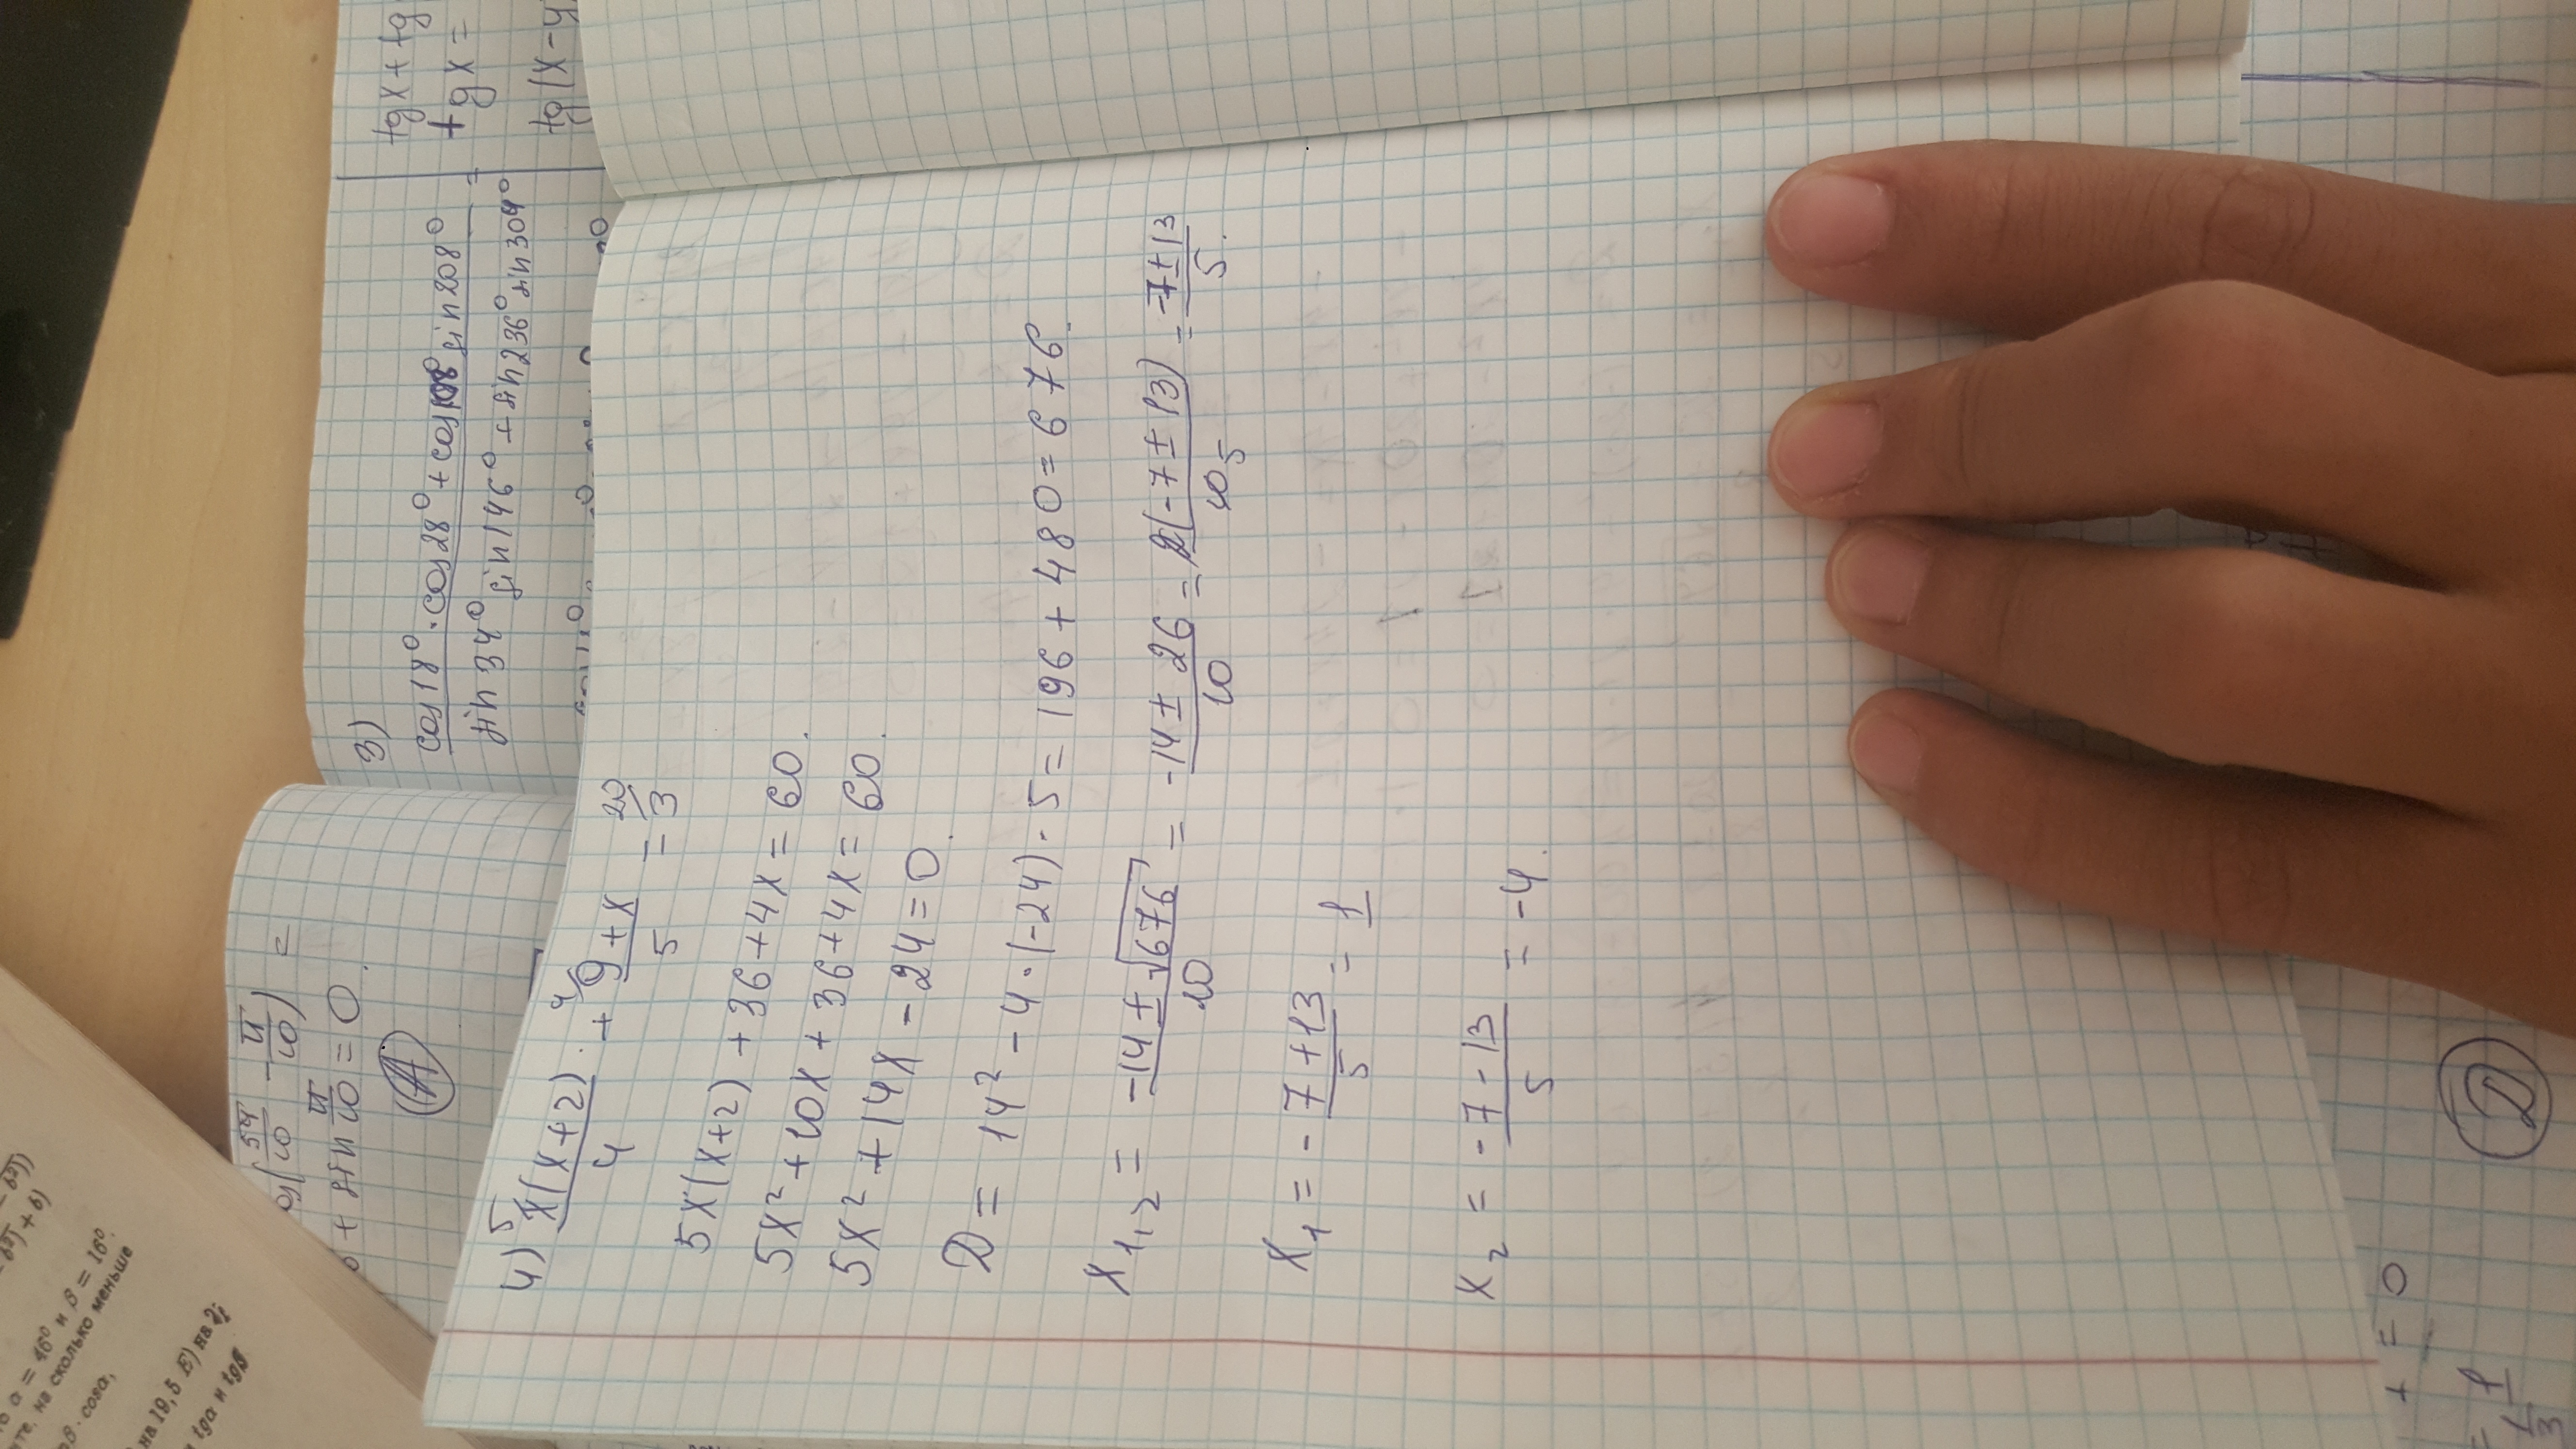 tgx + tg
+ gx =
tg(x-y
3)
cos18°·cos28° + cos108° sin208° =
sin34° sin146° + sin236° sin304°
54/10 - π/10) =
+ sin π/10 = 0.
A
4) 5 x(x+2)/4 + 4 9+x/5 = 20/3
5x(x+2) + 36 + 4x = 60.
5x² + 10x + 36 + 4x = 60.
5x² + 14x - 24 = 0.
D = 14² - 4·(-24)·5 = 196 + 480 = 676.
x1,2 = -14 ± √676/10 = -14 ± 26/10 = 2(-7 ± 13)/10 5 = -7 ± 13/5.
x1 = -7 + 13/5 = 1
x2 = -7 - 13/5 = -4.
α = 46° и β = 16°.
на сколько меньше
cosα,
на 19,5 E) на 2
tgα и tgβ
D
+ = 0